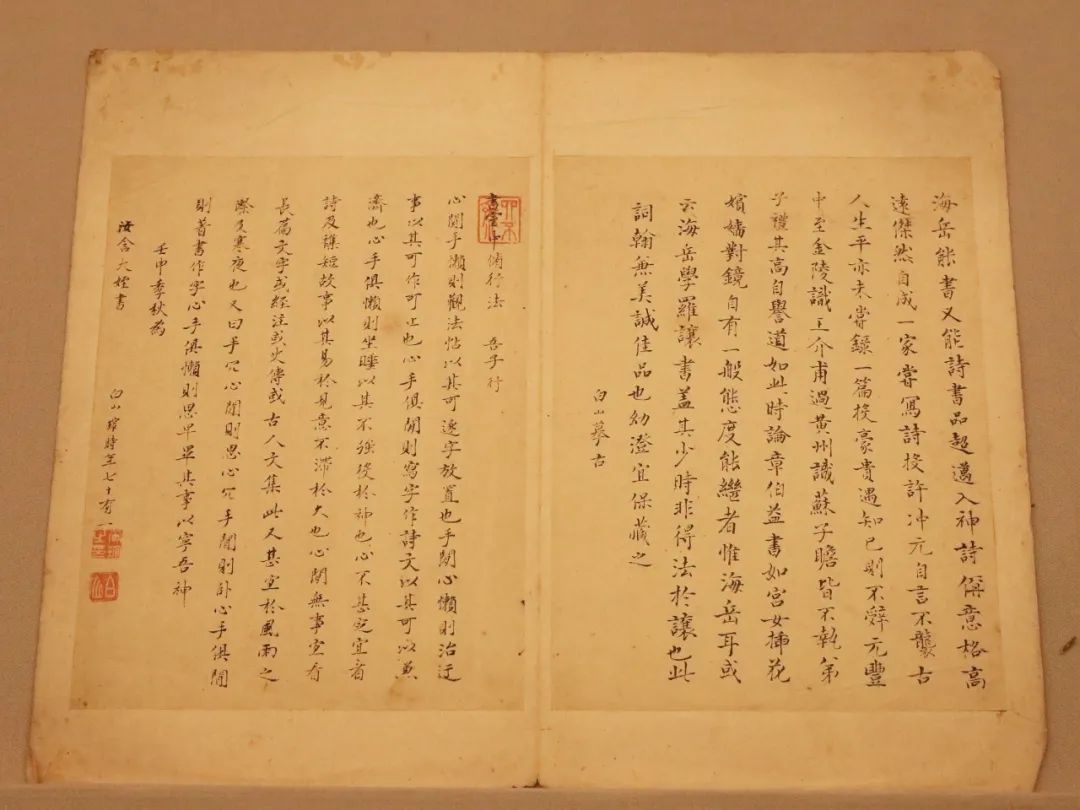 海岳能書又能詩書品超邁入神詩僻意格高
遠傑然自成一家嘗寫詩投許冲元自言不襲古
人生平亦未嘗錄一篇投豪貴遇知已則不辤元豐
中至金陵識王介甫過黃州識蘇子瞻皆不執弟
子禮其高自譽道如此時論章伯益書如宮女插花
嬪嬙對鏡自有一般態度能繼者惟海岳耳或
云海岳學羅讓書蓋其少時非得法於讓也此
詞翰兼美誠佳品也幼澄宜保藏之
白山摹古
書室中脩行法 吾子行
心閒手懶則觀法帖以其可逐字放置也手閒心懶則治迂
事以其可作可止也心手俱閒則寫字作詩文以其可以兼
濟也心手俱懶則坐睡以其不強役於神也心不甚定宜看
詩及雜短故事以其易於見意不滯於久也心閒無事宜看
長篇文字或經注或史傳或古人文集此又甚宜於風雨之
際及寒夜也又曰手冗心閒則思心冗手閒則卧心手俱閒
則著書作字心手俱懶則思早畢其事以寧吾神
壬申季秋為
汝舍大姪書
白山 時年七十有一